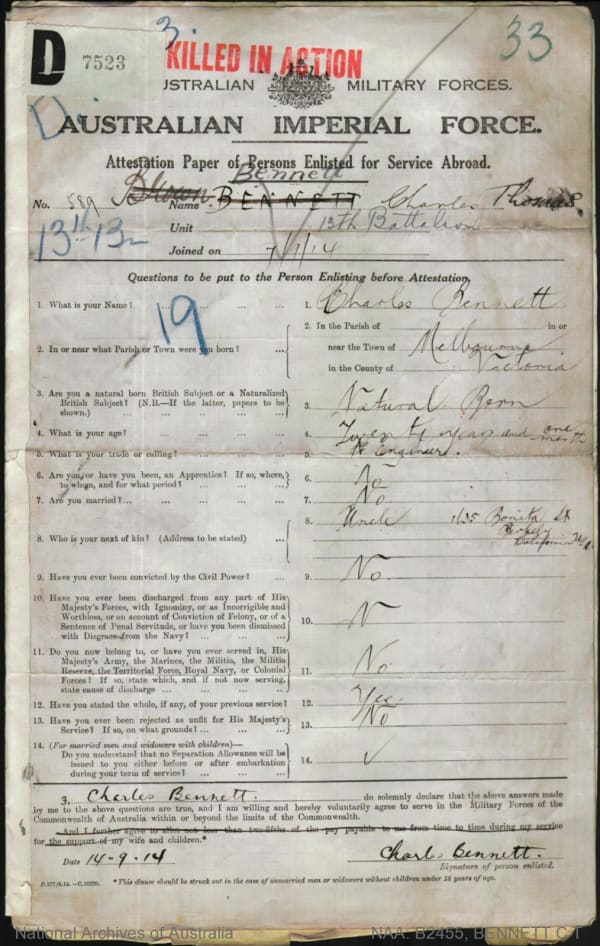 D 7523
3.
KILLED IN ACTION
33
AUSTRALIAN MILITARY FORCES.
AUSTRALIAN IMPERIAL FORCE.
Attestation Paper of Persons Enlisted for Service Abroad.
Bennett
No. 589 Brown Name BENNETT Charles Thomas
Unit 13th Battalion
Joined on 7/9/14
13th 13
Questions to be put to the Person Enlisting before Attestation.
1. What is your Name? ... 1. Charles Bennett
19
2. In or near what Parish or Town were you born? ... 2. In the Parish of in or
near the Town of Melbourne
in the County of Victoria
3. Are you a natural born British Subject or a Naturalized
British Subject? (N.B.—If the latter, papers to be
shown.) 3. Natural Born
4. What is your age? ... 4. Twenty years and one month
5. What is your trade or calling? ... 5. Engineer.
6. Are you or have you been, an Apprentice? If so, where,
to whom, and for what period? ... 6. No
7. Are you married? ... 7. No
8. Who is your next of kin? (Address to be stated) ... 8. Uncle 1635 Bonita St
Berkeley
California
9. Have you ever been convicted by the Civil Power? ... 9. No.
10. Have you ever been discharged from any part of His
Majesty's Forces, with Ignominy, or as Incorrigible and
Worthless, or on account of Conviction of Felony, or of a
Sentence of Penal Servitude, or have you been dismissed
with Disgrace from the Navy? ... 10. N
11. Do you now belong to, or have you ever served in, His
Majesty's Army, the Marines, the Militia, the Militia
Reserve, the Territorial Force, Royal Navy, or Colonial
Forces? If so, state which, and if not now serving,
state cause of discharge ... 11. No
12. Have you stated the whole, if any, of your previous service? 12. Yes
13. Have you ever been rejected as unfit for His Majesty's
Service? If so, on what grounds? ... 13. No
14. (For married men and widowers with children)—
Do you understand that no Separation Allowance will be
issued to you either before or after embarkation
during your term of service? ... 14. ✓
3, Charles Bennett. do solemnly declare that the above answers made
by me to the above questions are true, and I am willing and hereby voluntarily agree to serve in the Military Forces of the
Commonwealth of Australia within or beyond the limits of the Commonwealth.
And I further agree to allot not less than two-fifths of the pay payable to me from time to time during my service
for the support of my wife and children.*
Date 14-9-14 Charls Bennett.
Signature of person enlisted.
*This clause should be struck out in the case of unmarried men or widowers without children under 18 years of age.
National Archives of Australia NAA: B2455, BENNETT C T